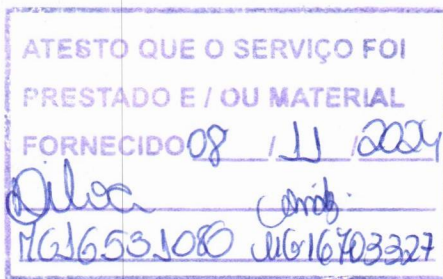 ATESTO QUE O SERVIÇO FOI
PRESTADO E / OU MATERIAL
FORNECIDO 08 / 11 / 2024
MG16531080 MG16703327